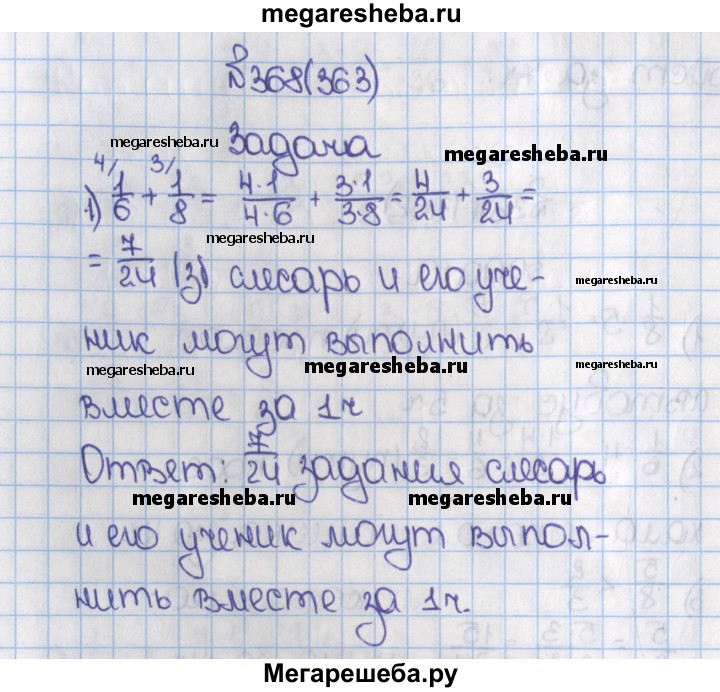 megaresheba.ru
№368(363)
Задача
megaresheba.ru
megaresheba.ru
4/ 3/
1) 1/6 + 1/8 = 4·1/4·6 + 3·1/3·8 = 4/24 + 3/24 =
megaresheba.ru
= 7/24 (з) слесарь и его уче-
megaresheba.ru
ник могут выполнить
megaresheba.ru
megaresheba.ru
вместе за 1ч
Ответ: 7/24 задания слесарь
megaresheba.ru
megaresheba.ru
и его ученик могут выпол-
нить вместе за 1ч.
megaresheba.ru
Мегарешеба.ру